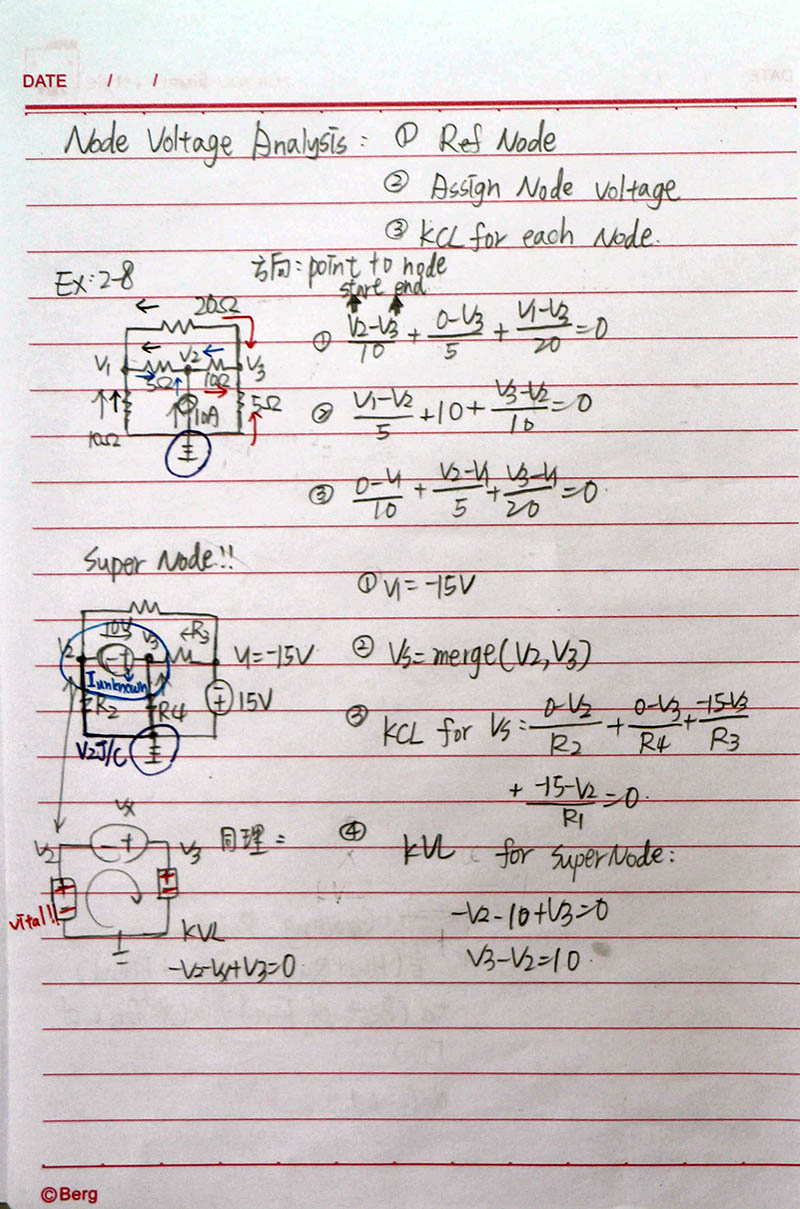 DATE / /
Node Voltage Analysis: ① Ref Node
② Assign Node voltage
③ KCL for each Node.
Ex:2-8
方向=point to node
start end
20Ω
V1 V2 V3
5Ω 10Ω
10A 5Ω
10Ω
① (V2-V3)/10 + (0-V3)/5 + (V1-V3)/20 = 0
② (V1-V2)/5 + 10 + (V3-V2)/10 = 0
③ (0-V1)/10 + (V2-V1)/5 + (V3-V1)/20 = 0
Super Node!!
10V
V2 V3 ←R3 V1=-15V
I unknown
R2 R4 15V
① V1=-15V
② Vs=merge(V2,V3)
③ KCL for Vs=(0-V2)/R2 + (0-V3)/R4 + (-15-V3)/R3
+ (-15-V2)/R1 = 0.
Vx
V2 V3
vital!!
KVL
-V2-Vx+V3=0
同理=
④ KVL for SuperNode:
-V2-10+V3=0
V3-V2=10
©Berg